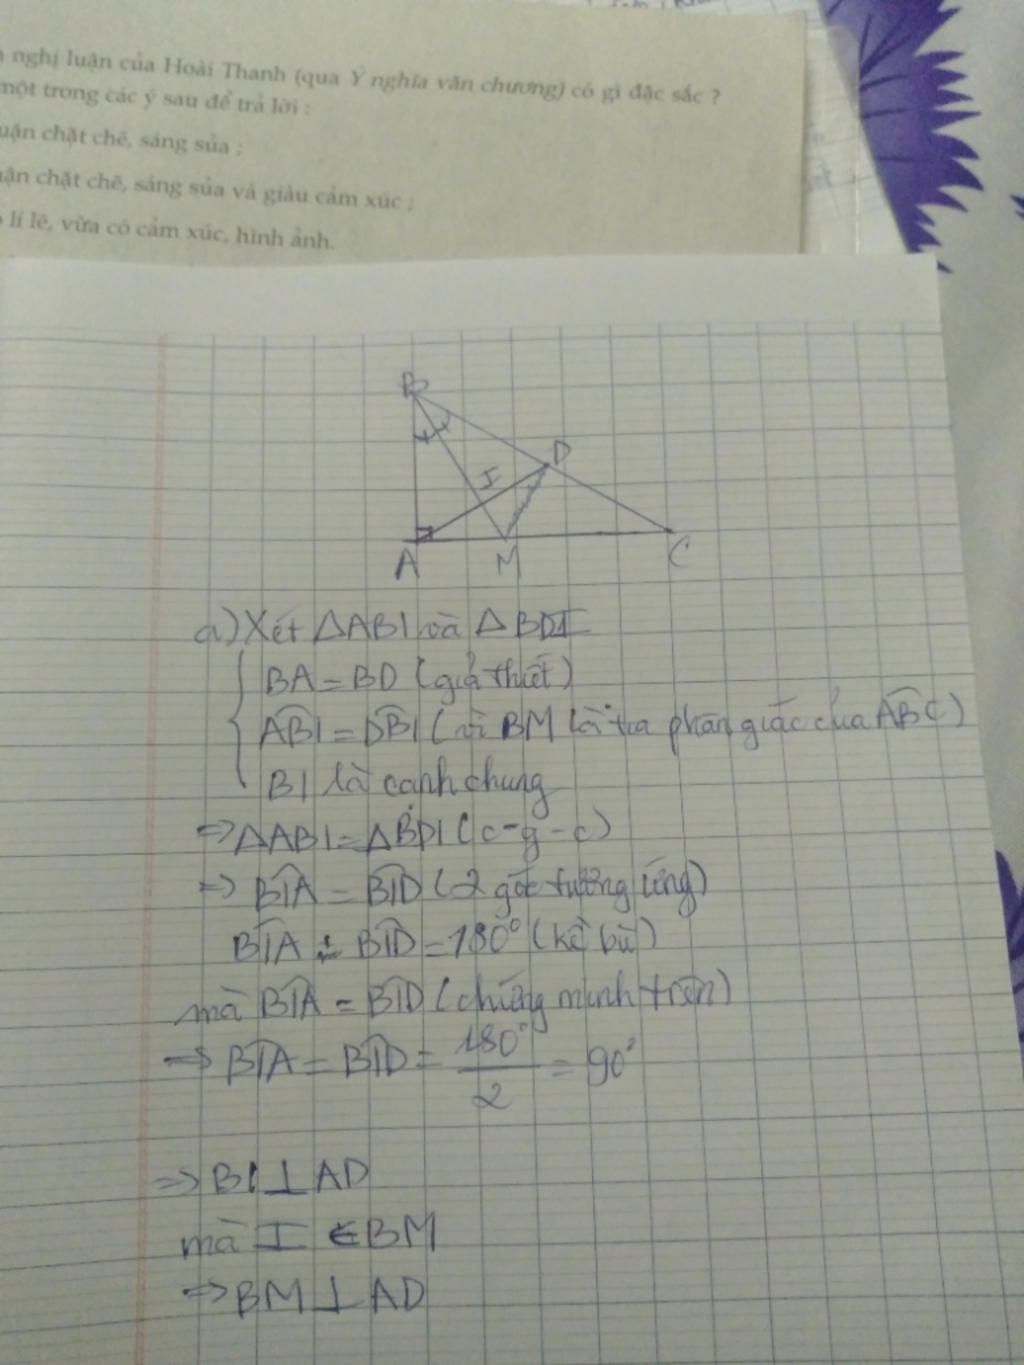 nghị luận của Hoài Thanh (qua Ý nghĩa văn chương) có gì đặc sắc ?
một trong các ý sau để trả lời :
uận chặt chẽ, sáng sủa ;
uận chặt chẽ, sáng sủa và giàu cảm xúc ;
lí lẽ, vừa có cảm xúc, hình ảnh.
B
D
I
A M C
a) Xét △ABI và △BDI
BA = BD (giả thiết)
ABI = DBI (vì BM là tia phân giác của ABC)
BI là cạnh chung
=> △ABI = △BDI (c-g-c)
=> BIA = BID (2 góc tương ứng)
BIA + BID = 180° (kề bù)
mà BIA = BID (chứng minh trên)
=> BIA = BID = 180° / 2 = 90°
=> BI ⊥ AD
mà I ∈ BM
=> BM ⊥ AD